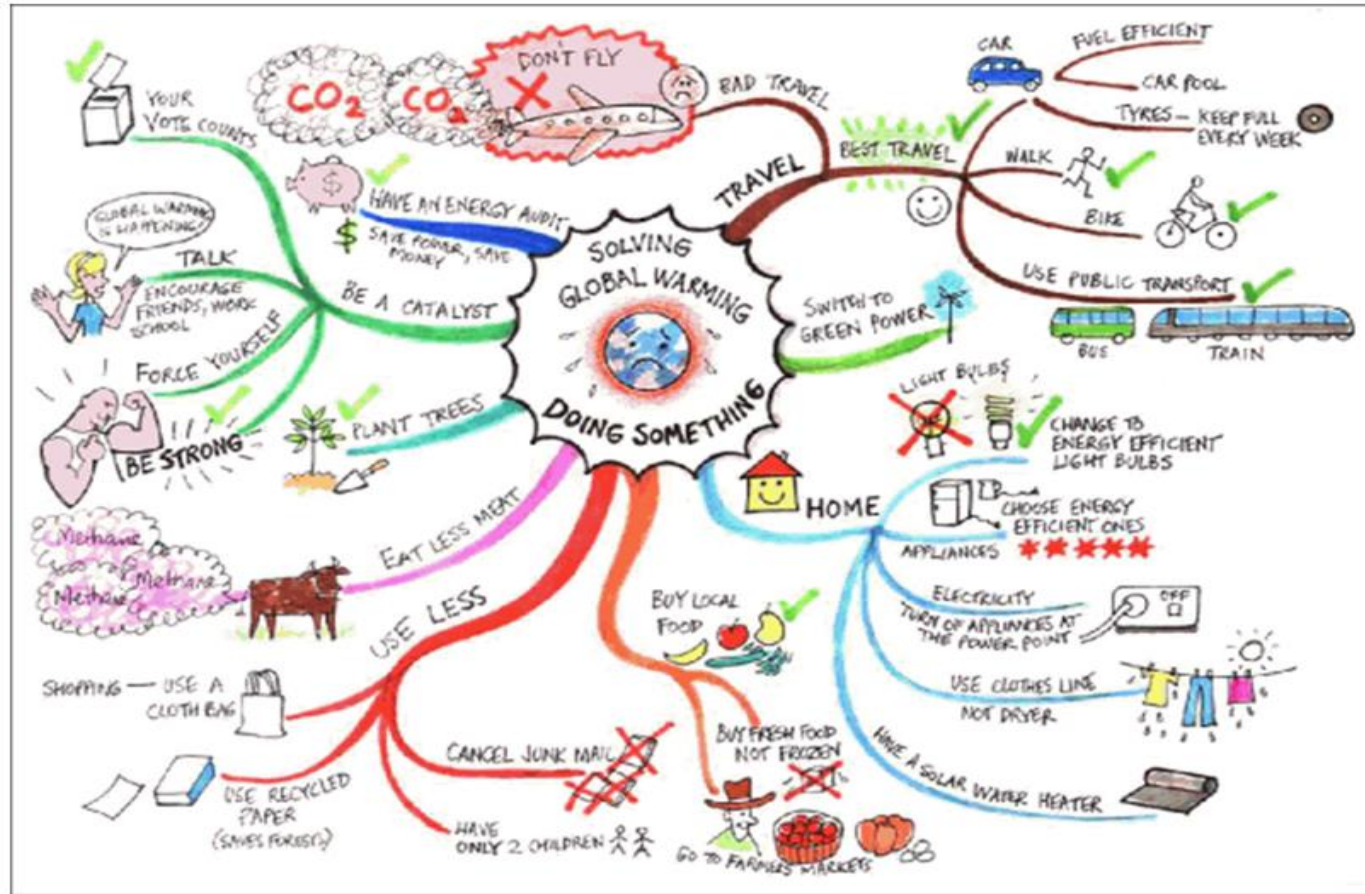 SOLVING
GLOBAL WARMING
DOING SOMETHING
TRAVEL
BAD TRAVEL
DON'T FLY
CO2
CO2
BEST TRAVEL
CAR
FUEL EFFICIENT
CAR POOL
TYRES — KEEP FULL
EVERY WEEK
WALK
BIKE
USE PUBLIC TRANSPORT
BUS
TRAIN
SWITCH TO
GREEN POWER
HOME
LIGHT BULBS
CHANGE TO
ENERGY EFFICIENT
LIGHT BULBS
CHOOSE ENERGY
EFFICIENT ONES
APPLIANCES
ELECTRICITY
TURN OF APPLIANCES AT
THE POWER POINT
OFF
USE CLOTHES LINE
NOT DRYER
HAVE A SOLAR WATER HEATER
BUY LOCAL
FOOD
BUY FRESH FOOD
NOT FROZEN
GO TO FARMERS MARKETS
USE LESS
SHOPPING — USE A
CLOTH BAG
USE RECYCLED
PAPER
(SAVES FORESTS)
CANCEL JUNK MAIL
HAVE
ONLY 2 CHILDREN
EAT LESS MEAT
Methane
Methane
Methane
PLANT TREES
BE A CATALYST
YOUR
VOTE COUNTS
GLOBAL WARMING
IS HAPPENING!
TALK
ENCOURAGE
FRIENDS, WORK
SCHOOL
FORCE YOURSELF
BE STRONG
HAVE AN ENERGY AUDIT
SAVE POWER, SAVE
MONEY
$
$